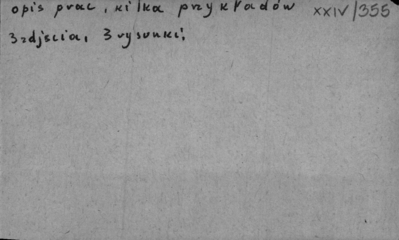 opis prac, kilka przykładów XXIV/355
3 zdjęcia, 3 rysunki;